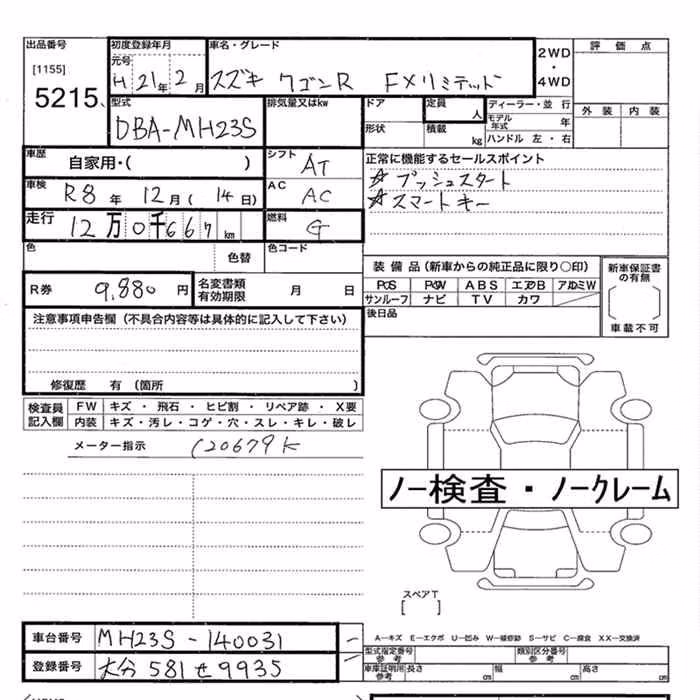 出品番号
[1155]
5215
初度登録年月
元号
H 21年 2月
車名・グレード
スズキ ワゴンR FXリミテッド
2WD
・
4WD
評価点
外装 内装
型式
DBA-MH23S
排気量又はkw
ドア
形状
定員
人
積載
kg
ディーラー・並行
モデル年式 年
ハンドル 左・右
車歴
自家用・( )
シフト
AT
正常に機能するセールスポイント
☆プッシュスタート
☆スマートキー
車検
R8年 12月(14日)
AC
AC
走行
12万0千667km
燃料
G
色
色替
色コード
装備品(新車からの純正品に限り○印)
PS PW ABS エアB アルミW
サンルーフ ナビ TV カワ
後日品
新車保証書の有無
車載不可
R券 9,880円
名変書類有効期限 月 日
注意事項申告欄(不具合内容等は具体的に記入して下さい)
修復歴 有(箇所 )
検査員記入欄
FW キズ・飛石・ヒビ割・リペア跡・X要
内装 キズ・汚レ・コゲ・穴・スレ・キレ・破レ
メーター指示 120679K
ノー検査・ノークレーム
スペアT
[ ]
車台番号 MH23S-140031
登録番号 大分 581 せ 9935
A-キズ E-エクボ U-凹み W-補修跡 S-サビ C-腐食 XX-交換済
型式指定番号
参考
類別区分番号
参考
車庫証明用参考 長さ cm 幅 cm 高さ cm